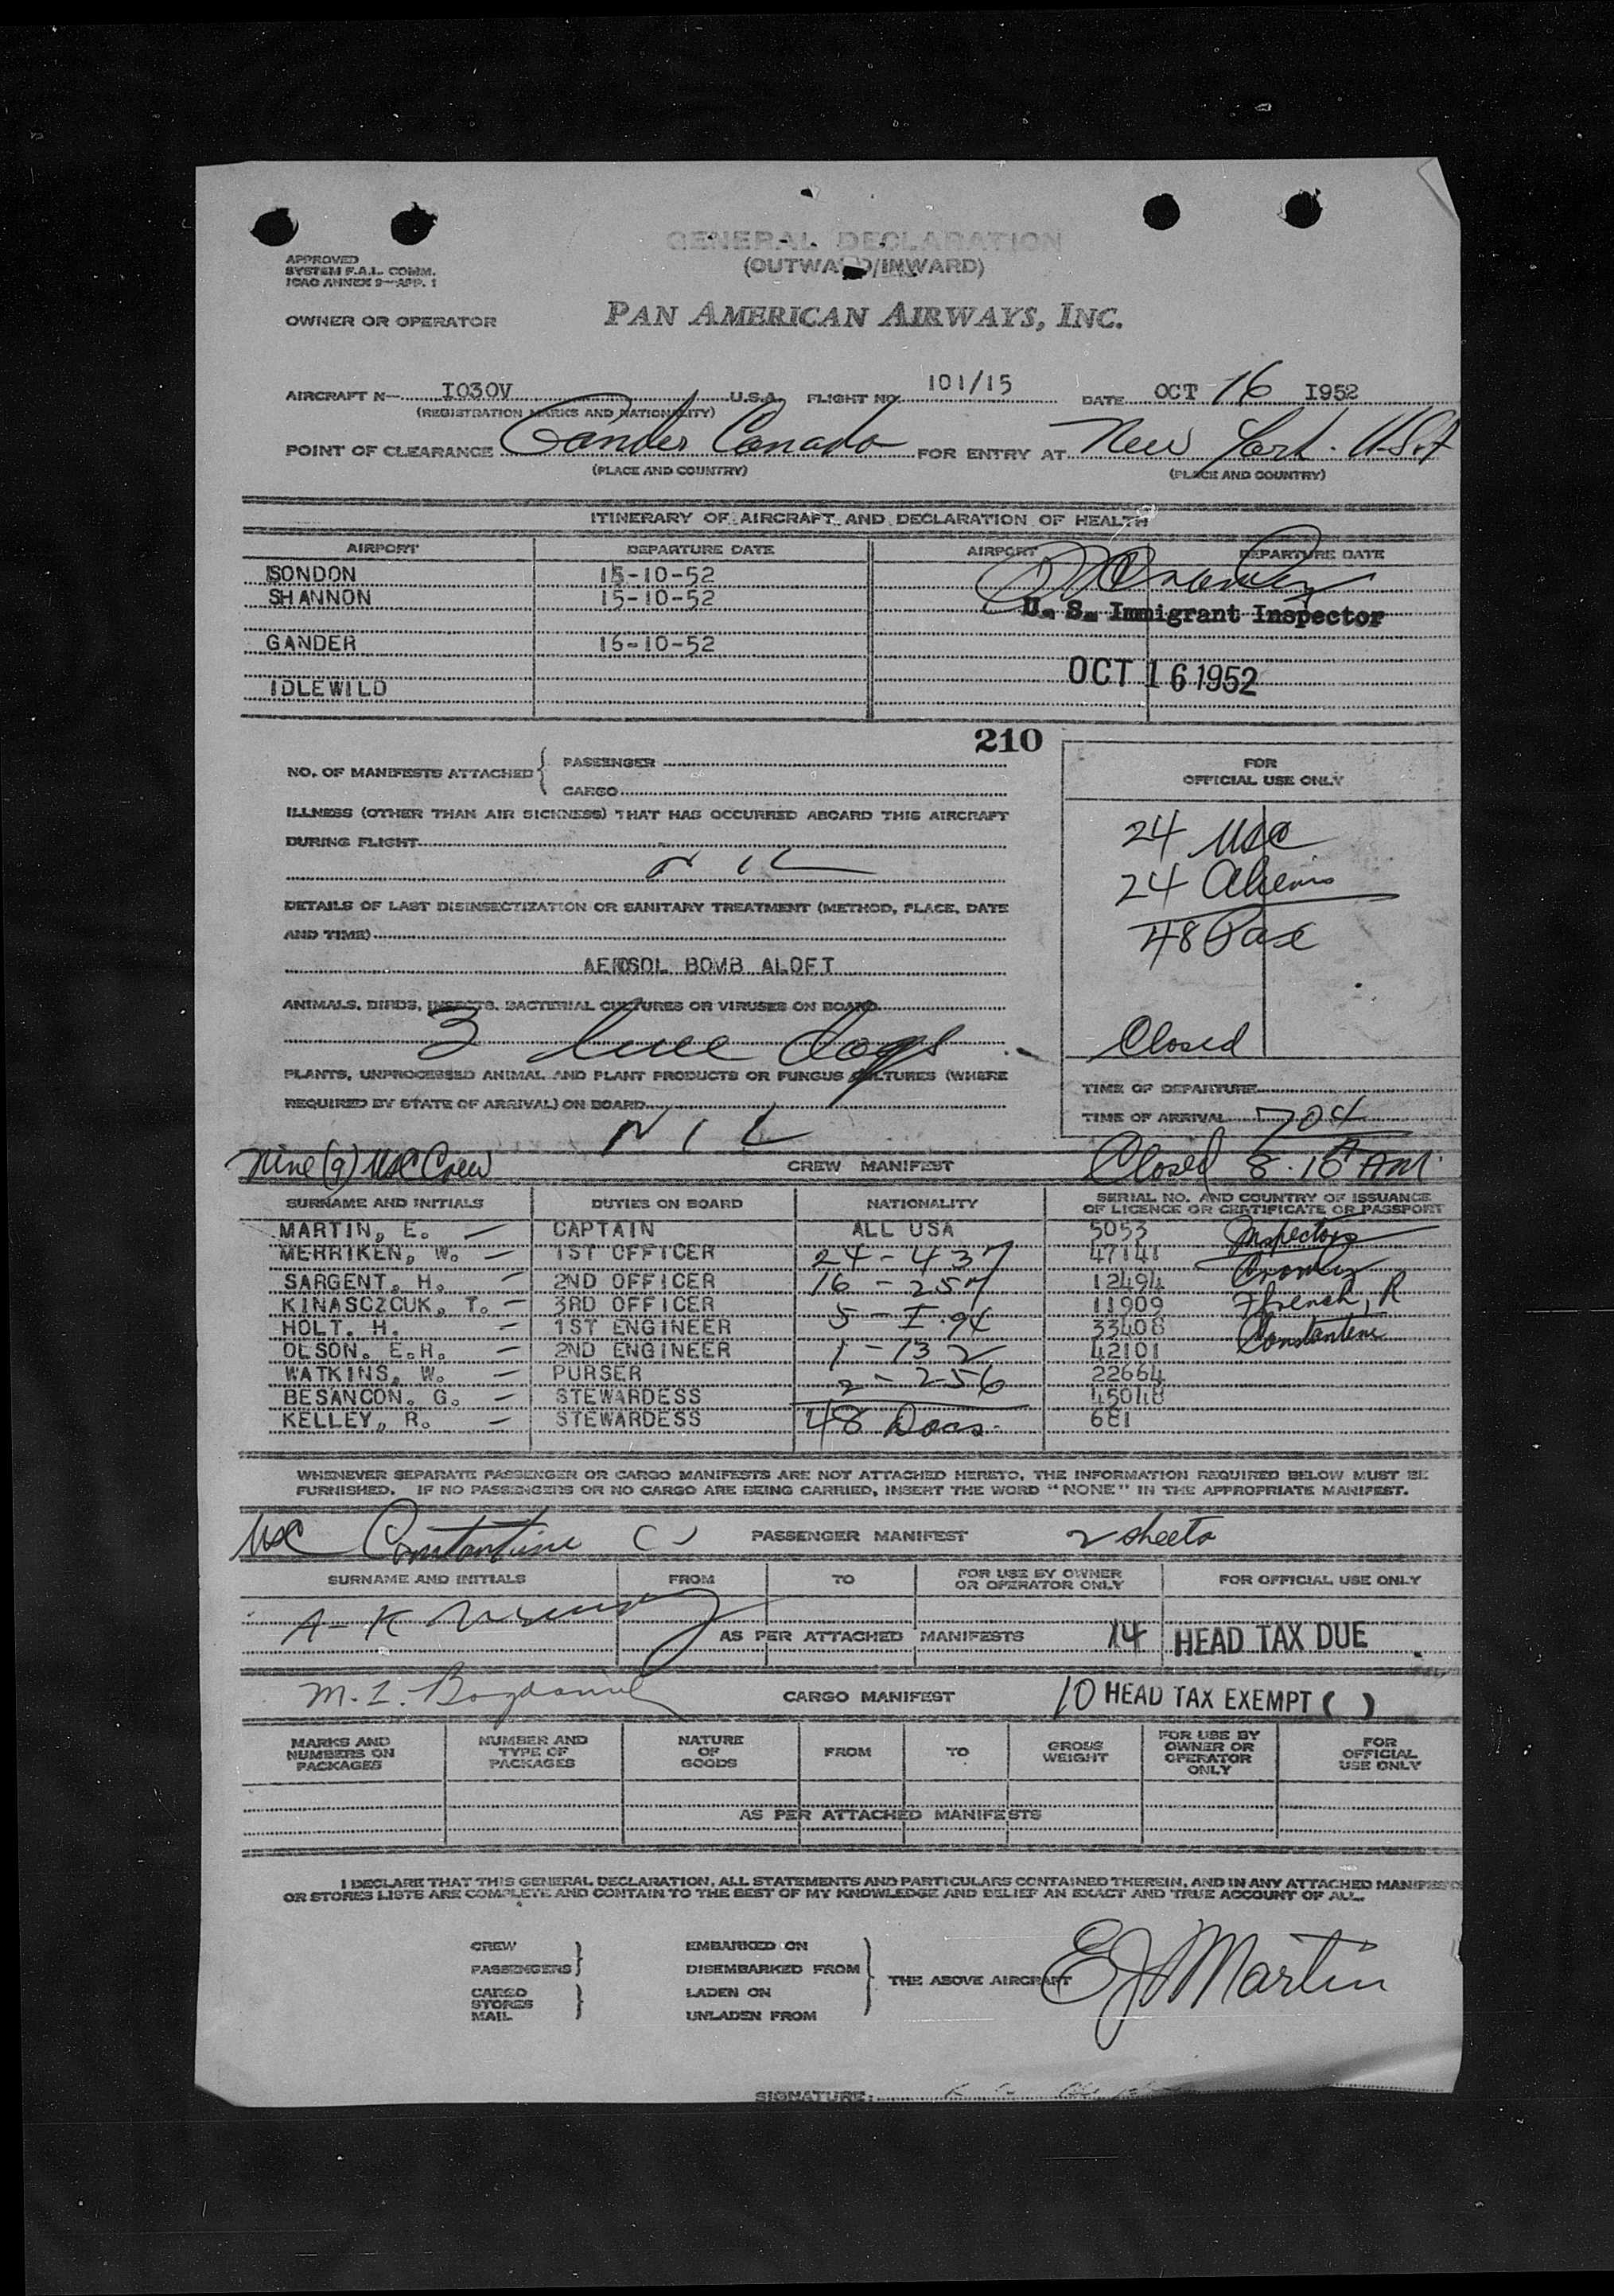 GENERAL DECLARATION
(OUTWARD/INWARD)
APPROVED
SYSTEM F.A.L. COMM.
ICAO ANNEX 9—APP. 1
OWNER OR OPERATOR PAN AMERICAN AIRWAYS, INC.
AIRCRAFT N— I030V U.S.A. FLIGHT NO. 101/15 DATE OCT 16 I952
(REGISTRATION MARKS AND NATIONALITY)
POINT OF CLEARANCE Gander Canada FOR ENTRY AT New York. U.S.A
(PLACE AND COUNTRY) (PLACE AND COUNTRY)
ITINERARY OF AIRCRAFT AND DECLARATION OF HEALTH
AIRPORT DEPARTURE DATE AIRPORT DEPARTURE DATE
LONDON 15-10-52
SHANNON 15-10-52
U. S. Immigrant Inspector
GANDER 16-10-52
OCT 16 1952
IDLEWILD
210
NO. OF MANIFESTS ATTACHED { PASSENGER
CARGO
FOR
OFFICIAL USE ONLY
ILLNESS (OTHER THAN AIR SICKNESS) THAT HAS OCCURRED ABOARD THIS AIRCRAFT
DURING FLIGHT
NIL
24 USC
24 Aliens
48 Pax
DETAILS OF LAST DISINSECTIZATION OR SANITARY TREATMENT (METHOD, PLACE, DATE
AND TIME)
AEROSOL BOMB ALOFT
ANIMALS, BIRDS, INSECTS, BACTERIAL CULTURES OR VIRUSES ON BOARD
3 live dogs
Closed
PLANTS, UNPROCESSED ANIMAL AND PLANT PRODUCTS OR FUNGUS CULTURES (WHERE
REQUIRED BY STATE OF ARRIVAL) ON BOARD
NIL
TIME OF DEPARTURE
TIME OF ARRIVAL 704
A
Nine (9) USC Crew CREW MANIFEST Closed 8.10 AM.
SURNAME AND INITIALS DUTIES ON BOARD NATIONALITY SERIAL NO. AND COUNTRY OF ISSUANCE
OF LICENCE OR CERTIFICATE OR PASSPORT
MARTIN, E. — CAPTAIN ALL USA 5053 Inspectors
MERRIKEN, W. — 1ST OFFICER 24 - 437 47141 Crowley
SARGENT, H. — 2ND OFFICER 16 - 257 12494
KINASCZCUK, T. — 3RD OFFICER 5 - I.94 11909 Ffrench, R
HOLT. H. — 1ST ENGINEER 33408 Constantine
OLSON. E.H. — 2ND ENGINEER 1 - 132 42101
WATKINS, W. — PURSER 2 - 256 22664
BESANCON. G. — STEWARDESS 45048
KELLEY, R. — STEWARDESS 48 Docs. 681
WHENEVER SEPARATE PASSENGER OR CARGO MANIFESTS ARE NOT ATTACHED HERETO, THE INFORMATION REQUIRED BELOW MUST BE
FURNISHED. IF NO PASSENGERS OR NO CARGO ARE BEING CARRIED, INSERT THE WORD "NONE" IN THE APPROPRIATE MANIFEST.
USC Constantine ( ) PASSENGER MANIFEST 2 sheets
SURNAME AND INITIALS FROM TO FOR USE BY OWNER
OR OPERATOR ONLY FOR OFFICIAL USE ONLY
A-K
AS PER ATTACHED MANIFESTS 14 HEAD TAX DUE
M.Z. CARGO MANIFEST 10 HEAD TAX EXEMPT ( )
MARKS AND
NUMBERS ON
PACKAGES NUMBER AND
TYPE OF
PACKAGES NATURE
OF
GOODS FROM TO GROSS
WEIGHT FOR USE BY
OWNER OR
OPERATOR
ONLY FOR
OFFICIAL
USE ONLY
AS PER ATTACHED MANIFESTS
I DECLARE THAT THIS GENERAL DECLARATION, ALL STATEMENTS AND PARTICULARS CONTAINED THEREIN, AND IN ANY ATTACHED MANIFESTS
OR STORES LISTS ARE COMPLETE AND CONTAIN TO THE BEST OF MY KNOWLEDGE AND BELIEF AN EXACT AND TRUE ACCOUNT OF ALL.
CREW
PASSENGERS }
CARGO
STORES
MAIL }
EMBARKED ON
DISEMBARKED FROM
LADEN ON
UNLADEN FROM } THE ABOVE AIRCRAFT EJ Martin
SIGNATURE: